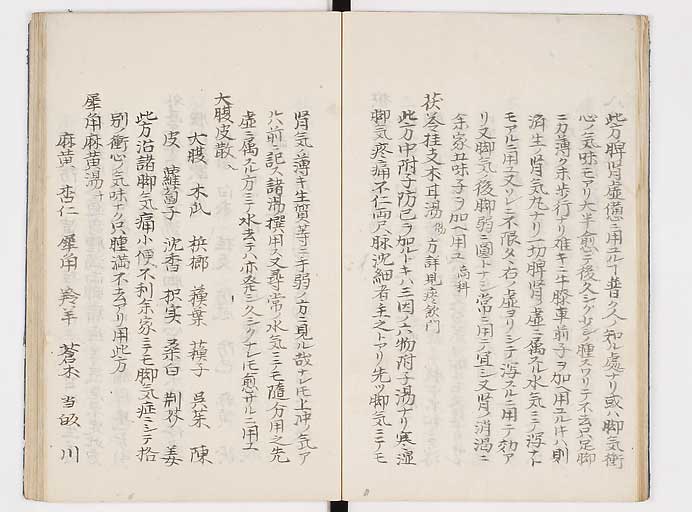 此方脾腎虚憊ニ用ユル丨普ク人ノ知ル處ナリ或ハ脚気衝
心ノ気味モアリ大半愈テ後久シク少シク腫スワリテ不去只足脚
ニ力薄ク余歩行ナリ難キニ牛膝車前子ヲ加ヘ用ユルキハ則
済生ノ腎気丸ナリ一切脾腎ノ虚ニ属スル水気ミテ瀉ナト
モアルニ用ユ又ソレニ不限タヽ右ノ虚ヨリシテ瀉スルニ用テ効ア
リ又脚気ノ後脚弱ニ圖トナシ常ニ用テ宜シ又腎ノ消渇ニ
余家五味子ヲ加ヘ用ユ 高科
茯苓桂支木耳湯 方詳見痰飲門
此方中附子防已ヲ加ルトキハ三因ノ六物附子湯ナリ寒湿
脚気疼痛不仁両尺脉沈細者主之トアリ先ツ脚気ミテモ
腎気ノ薄キ生質等ニテ手弱ノ方ニ見ル哉ナレモ上冲ノ気ア
ハ前ニ記ス諸湯撰用ス又尋常ノ水気ミテモ随分用之先
虚ニ属スル方ミテ水老テハ亦発シ久シクナレモ愈サルニ用ユ
大腹皮散
大腹 木瓜 梹榔 蘓葉 蘓子 呉茱 陳
皮 蘿蔔子 沈香 枳実 桑白 荆芥 姜
此方治諸脚気痛小便不利余家ミテモ脚気症ミシテ格
別ノ衝心ノ気味ナク只腫満不去アリ用此方
犀角麻黄湯
麻黄 防 杏仁 犀角 羚羊 蒼朮 当皈 川